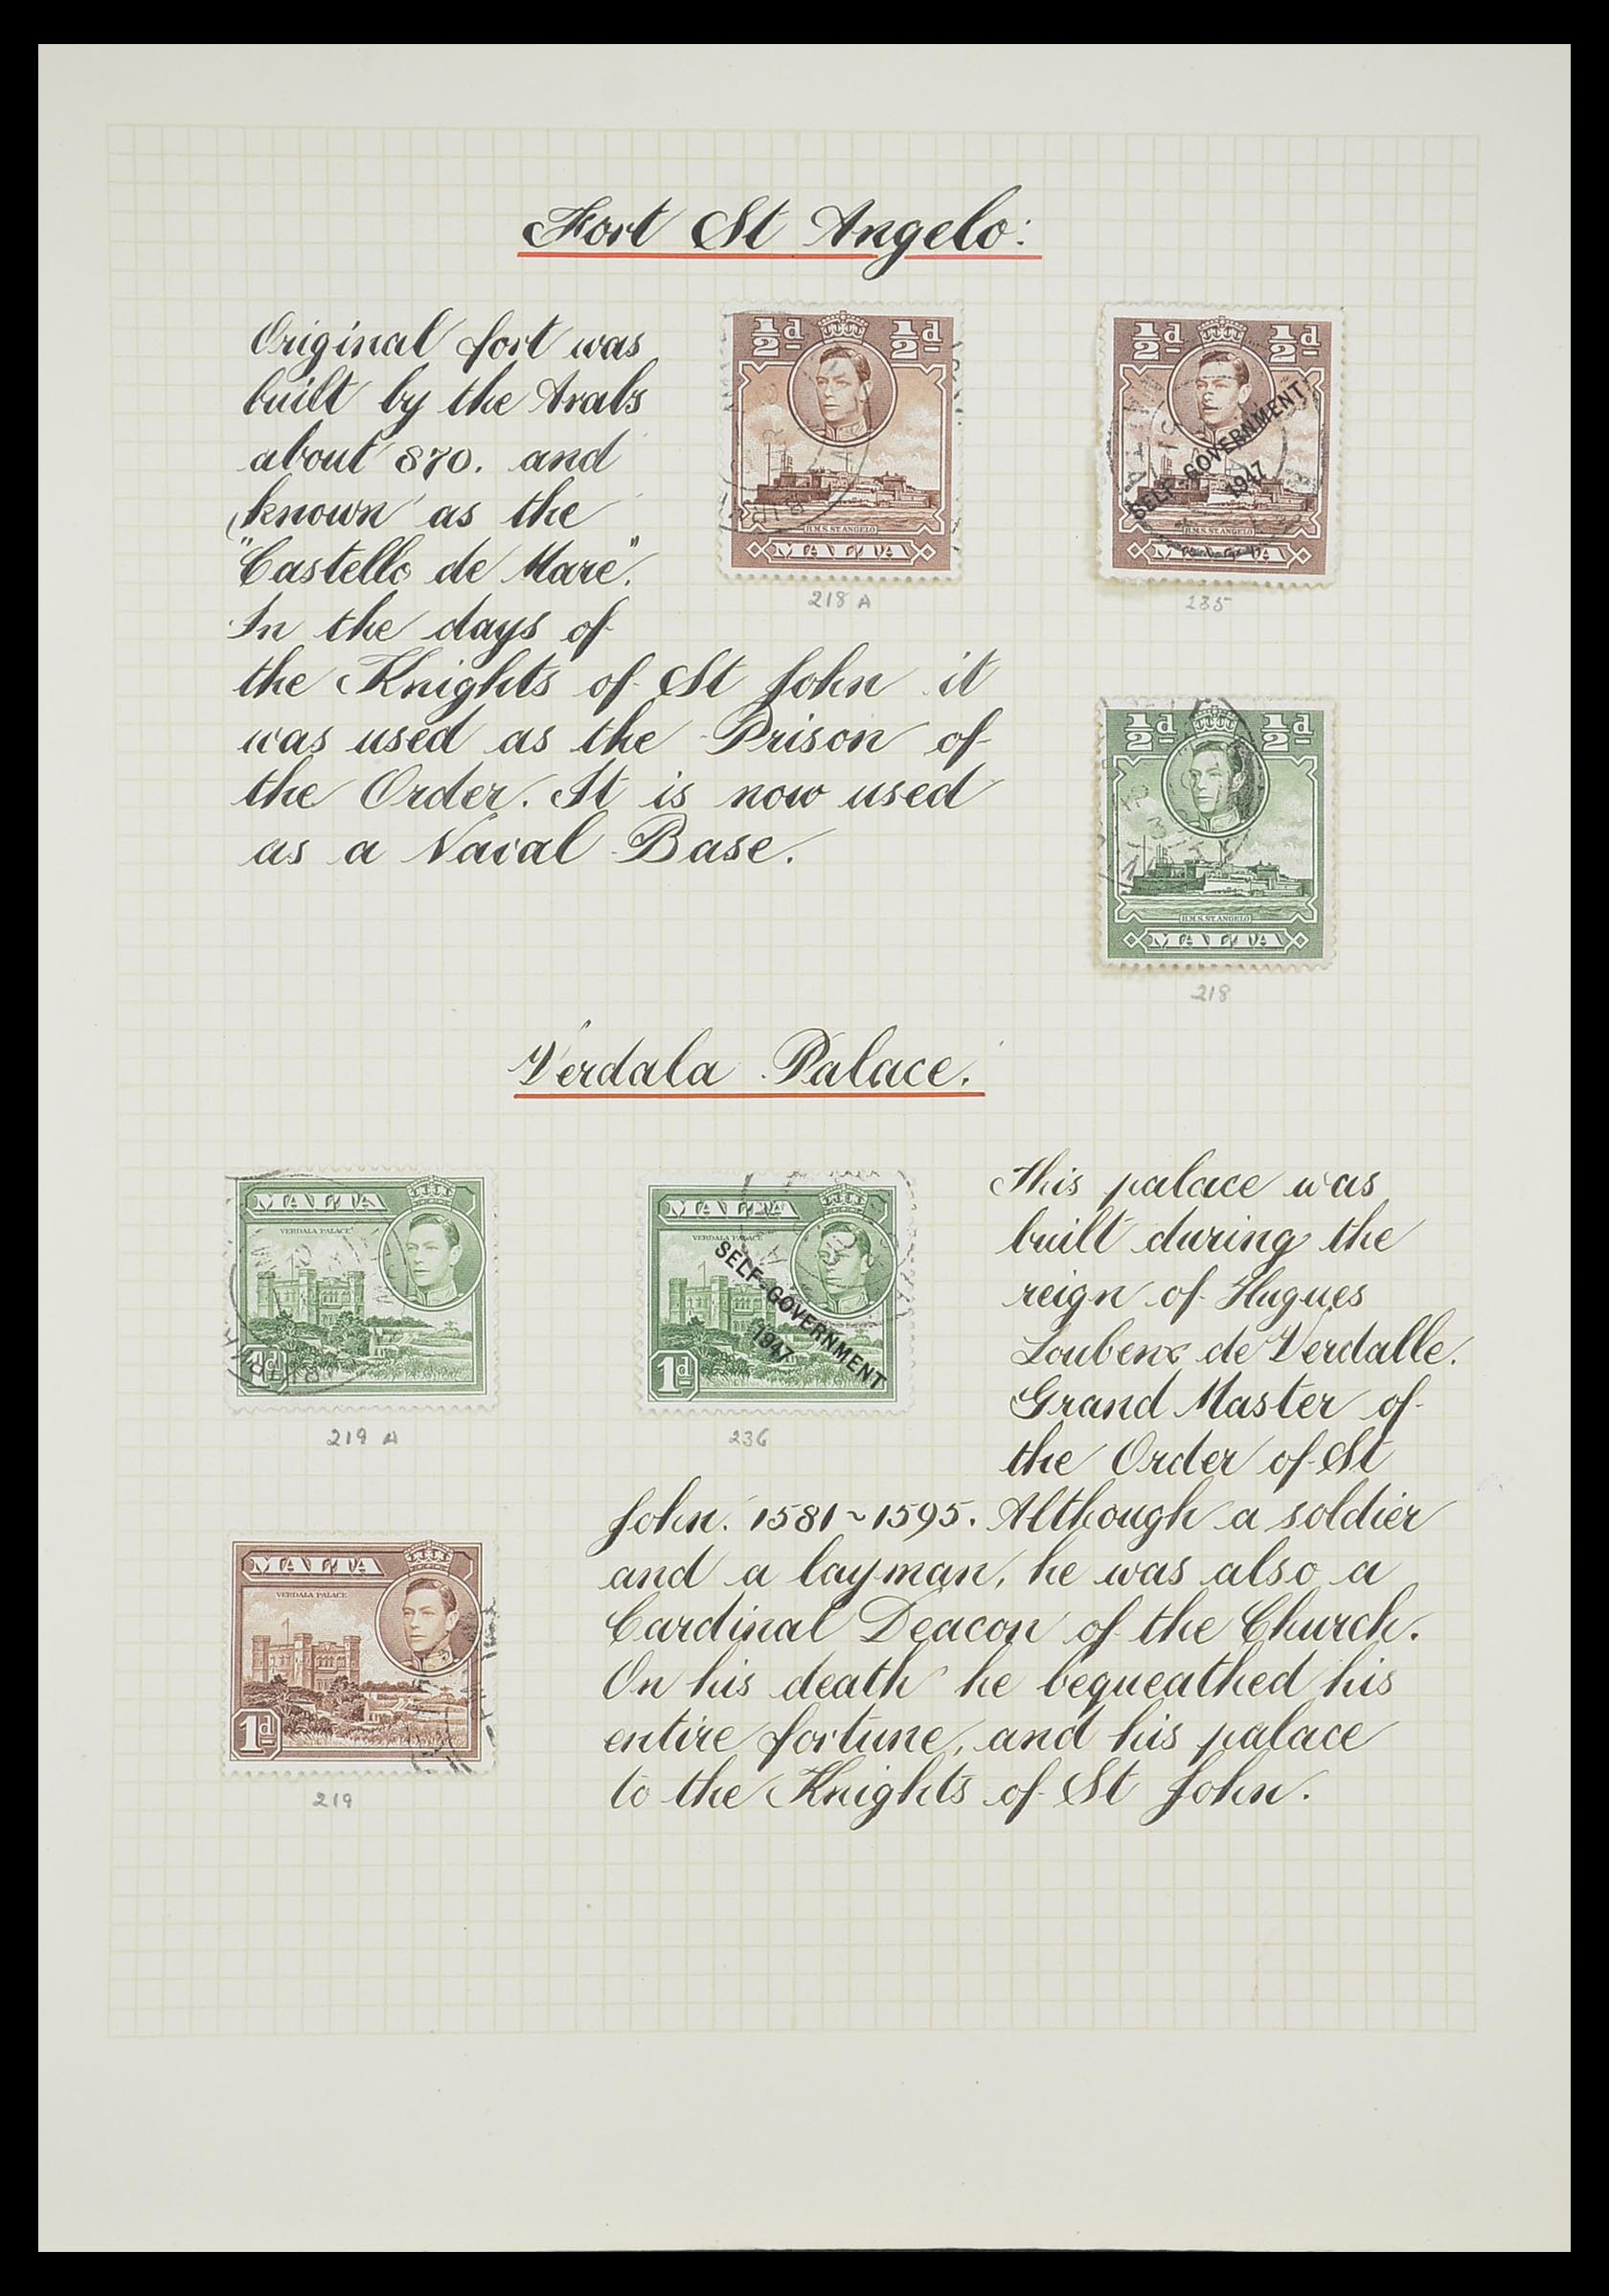 Fort St Angelo:
Original fort was
built by the Arabs
about 870. and
known as the
"Castello de Mare".
In the days of
the Knights of St John it
was used as the Prison of
the Order. It is now used
as a Naval Base.
½d ½d
H.M.S. ST ANGELO
MALTA
218 A
½d ½d
SELF-GOVERNMENT
1947
H.M.S. ST ANGELO
MALTA
235
½d ½d
H.M.S. ST ANGELO
MALTA
218
Verdala Palace.
MALTA
VERDALA PALACE
1d
219 A
MALTA
VERDALA PALACE
SELF-GOVERNMENT
1947
1d
236
MALTA
VERDALA PALACE
1d
219
This palace was
built during the
reign of Hugues
Loubenx de Verdalle.
Grand Master of
the Order of St
John. 1581~1595. Although a soldier
and a layman, he was also a
Cardinal Deacon of the Church.
On his death he bequeathed his
entire fortune, and his palace
to the Knights of St John.